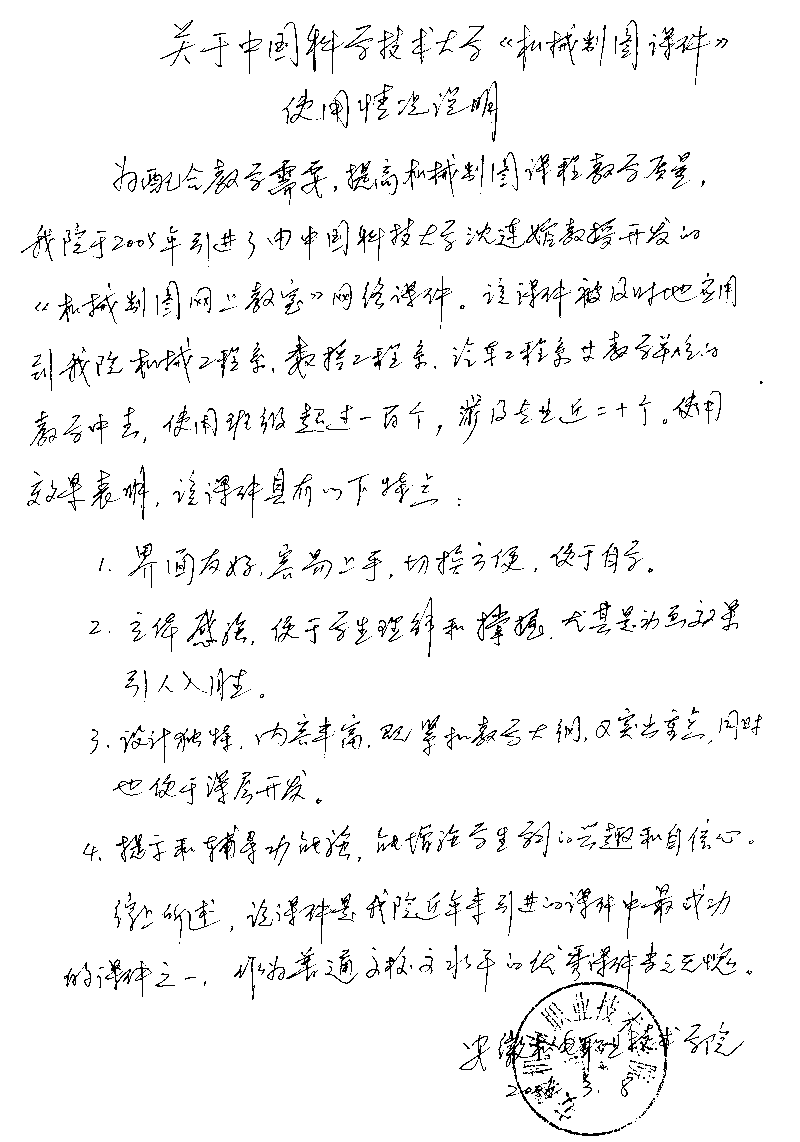 关于中国科学技术大学《机械制图课件》
使用情况说明
为配合教学需要，提高机械制图课程教学质量，
我院于2005年引进了由中国科技大学沈连婠教授开发的
《机械制图网上教室》网络课件。该课件被及时地应用
到我院机械工程系、数控工程系、汽车工程系等教学单位的
教学中去，使用班级超过一百个，涉及专业近二十个。使用
效果表明，该课件具有以下特点：
1. 界面友好，容易上手，切换方便，便于自学。
2. 立体感强，便于学生理解和掌握，尤其是动画效果
引人入胜。
3. 设计独特，内容丰富，既紧扣教学大纲，又突出重点，同时
也便于深层开发。
4. 提示和辅导功能强，能增强学生学习的兴趣和自信心。
综上所述，该课件是我院近年来引进的课件中最成功
的课件之一，作为普通高校高水平的优秀课件当之无愧。
安徽机电职业技术学院
5. 8